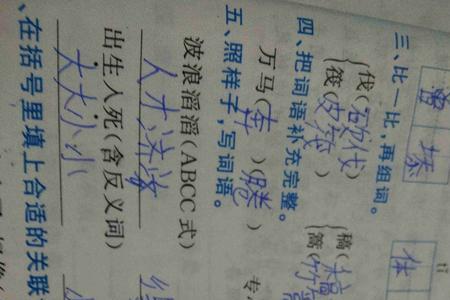 体
三、比一比，再组词。
伐（砍伐） 稿（
筏（皮筏） 篙（竹篙
四、把词语补充完整。
万马（奔）（腾） 专
五、照样子，写词语。
波浪滔滔（ABCC式）
人才济济
出生入死（含反义词）
大大小小
、在括号里填上合适的关联